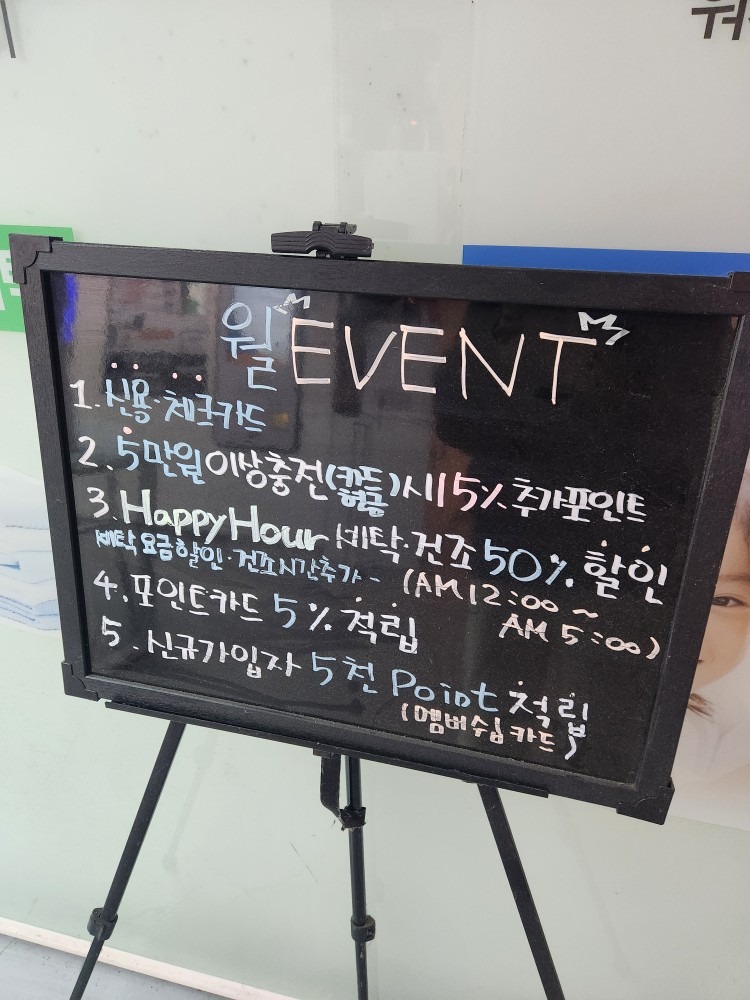 워
월 EVENT
1. 신용·체크카드
2. 5만원이상충전(카드 현금)시 15% 추가포인트
3. Happy Hour 세탁·건조 50% 할인
세탁요금할인·건조시간추가~ (AM 12:00 ~
AM 5:00)
4. 포인트카드 5% 적립
5. 신규가입자 5천 Point 적립
(멤버쉽카드)